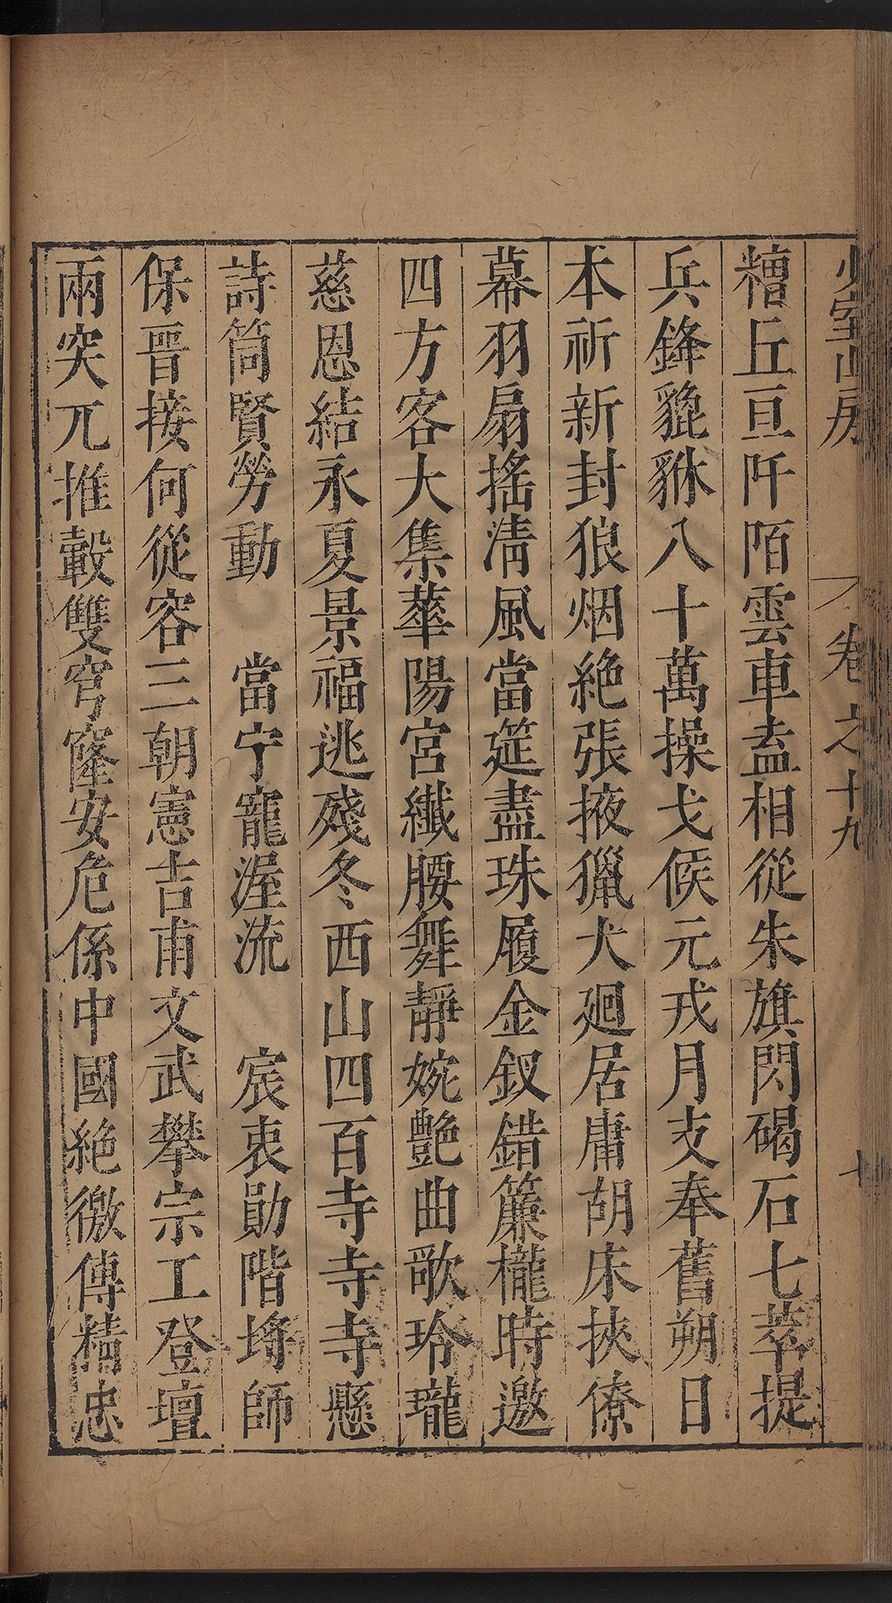 少室山房 卷之十九 七
糟丘亘阡陌雲車盍相從朱旗閃碣石七萃提
兵鋒貔貅八十萬操戈候元戎月支奉舊朔日
本祈新封狼烟絶張掖獵犬廻居庸胡床挾僚
幕羽扇揺清風當筵盡珠履金釵錯簾櫳時邀
四方客大集華陽宮纖腰舞靜婉艷曲歌玲瓏
慈恩結永夏景福逃殘冬西山四百寺寺寺懸
詩筒賢勞動 當宁寵渥流 宸衷勛階埓師
保晋接何從容三朝憲吉甫文武攀宗工登壇
兩突兀推轂雙穹窿安危係中國絶徼傳精忠